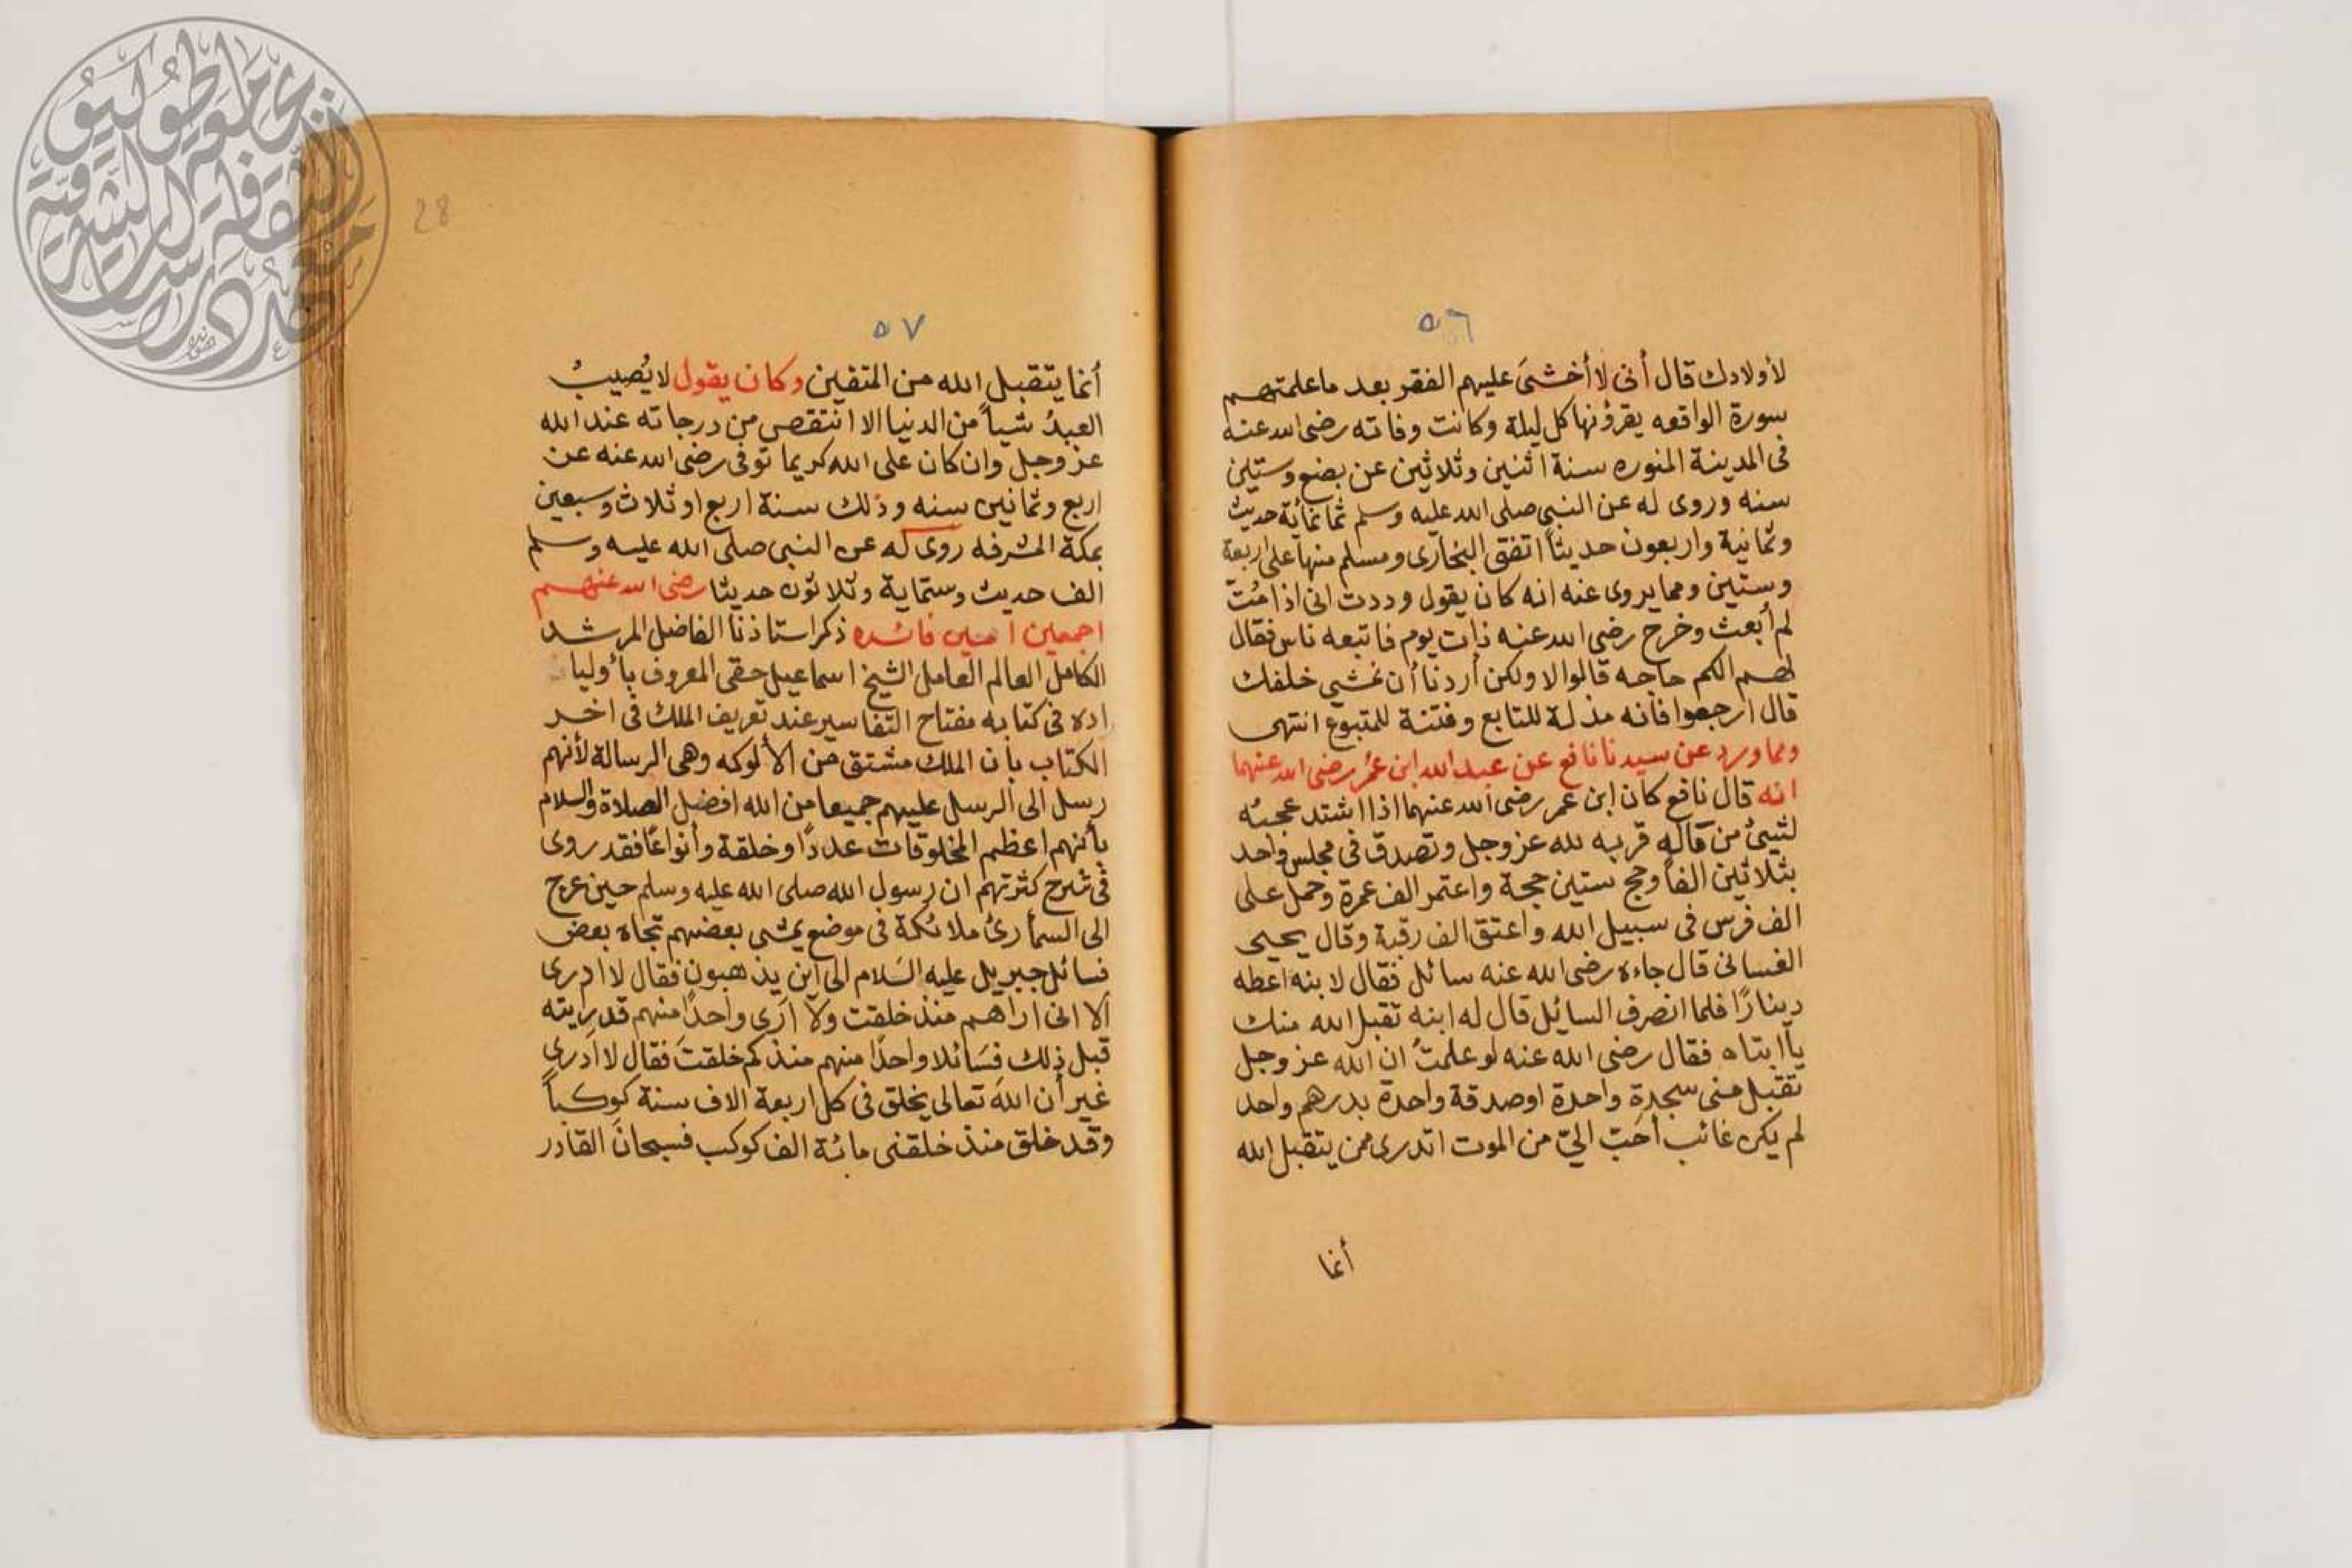 ٥٦
لأولادك قال أنى لا أخشىَ عليهم الفقر بعد ما علمتهم
سورة الواقعه يقرؤنها كل ليلة وكانت وفاته رضى الله عنه
فى المدينة المنوره سنة اثنين وثلاثين عن بضع وستين
سنه وروى له عن النبى صلى الله عليه وسلم ثمانمأية حديث
وثمانية واربعون حديثاً اتفق البخارى ومسلم منها على اربعة
وستين ومما يروى عنه انه كان يقول وددت انى اذا مُتّ
لم أبعث وخرج رضى الله عنه ذات يوم فاتبعه ناس فقال
لهم الكم حاجه قالوا لا ولكن أردنا أن نمشي خلفك
قال ارجعوا فانه مذلة للتابع وفتنة للمتبوع انتهى
ومما ورد عن سيدنا نافع عن عبد الله ابن عُمر رضى الله عنهما
انه قال نافع كان ابن عمر رضى الله عنهما اذا اشتد عجبُه
لشيئ من ماله قربه لله عز وجل وتصدق فى مجلس واحد
بثلاثين الفاً وحج ستين حجة واعتمر الف عمرة وحمل على
الف فرس فى سبيل الله واعتق الف رقبة وقال يحيى
الغسانى قال جاءه رضى الله عنه سائل فقال لابنه اعطه
دينارًا فلما انصرف السائل قال له ابنه تقبل الله منك
يا ابتاه فقال رضى الله عنه لو علمتُ ان الله عز وجل
تقبل منى سجدة واحدة او صدقة واحدة بدرهم واحد
لم يكن غائب أحَبّ اليّ من الموت اتدرى ممن يتقبل الله
أنما
28
٥٧
أنما يتقبل الله من المتقين وكان يقول لا يُصيبُ
العبدُ شياً من الدنيا الا انتقص من درجاته عند الله
عز وجل وان كان على الله كريما توفى رضى الله عنه عن
اربع وثمانين سنه وذلك سنة اربع او ثلاث وسبعين
بمكة المشرفه روى له عن النبى صلى الله عليه وسلم
الف حديث وستماية وثلاثون حديثا رضى الله عنهم
اجمعين امين فائده ذكر استاذنا الفاضل المرشد
الكامل العالم العامل الشيخ اسماعيل حقى المعروف بأوليا
اده فى كتابه مفتاح التفاسير عند تعريف الملك فى اخر
الكتاب بأن الملك مشتق من الألوكه وهى الرسالة لأنهم
رسل الى الرسل عليهم جميعا من الله افضل الصلاة والسلام
بأنهم اعظم المخلوقات عددًا وخلقة وأنواعًا فقد روى
فى شرح كثرتهم ان رسول الله صلى الله عليه وسلم حين عرج
الى السمأ رئ ملائكة فى موضع يمشى بعضهم تجاه بعض
فسائل جبريل عليه السَلام الى اين يذهبون فقال لا ادرى
الا انى اراهم منذ خلقت ولا ارَى واحدًا منهم قد ريته
قبل ذلك فسَائلا واحدًا منهم منذ كم خلقتَ فقال لا ادرى
غير أن اللهَ تعالى يخلق فى كل اربعة الاف سنة كوكباً
وقد خلق منذ خلقنى مائة الف كوكب فسبحانَ القادر